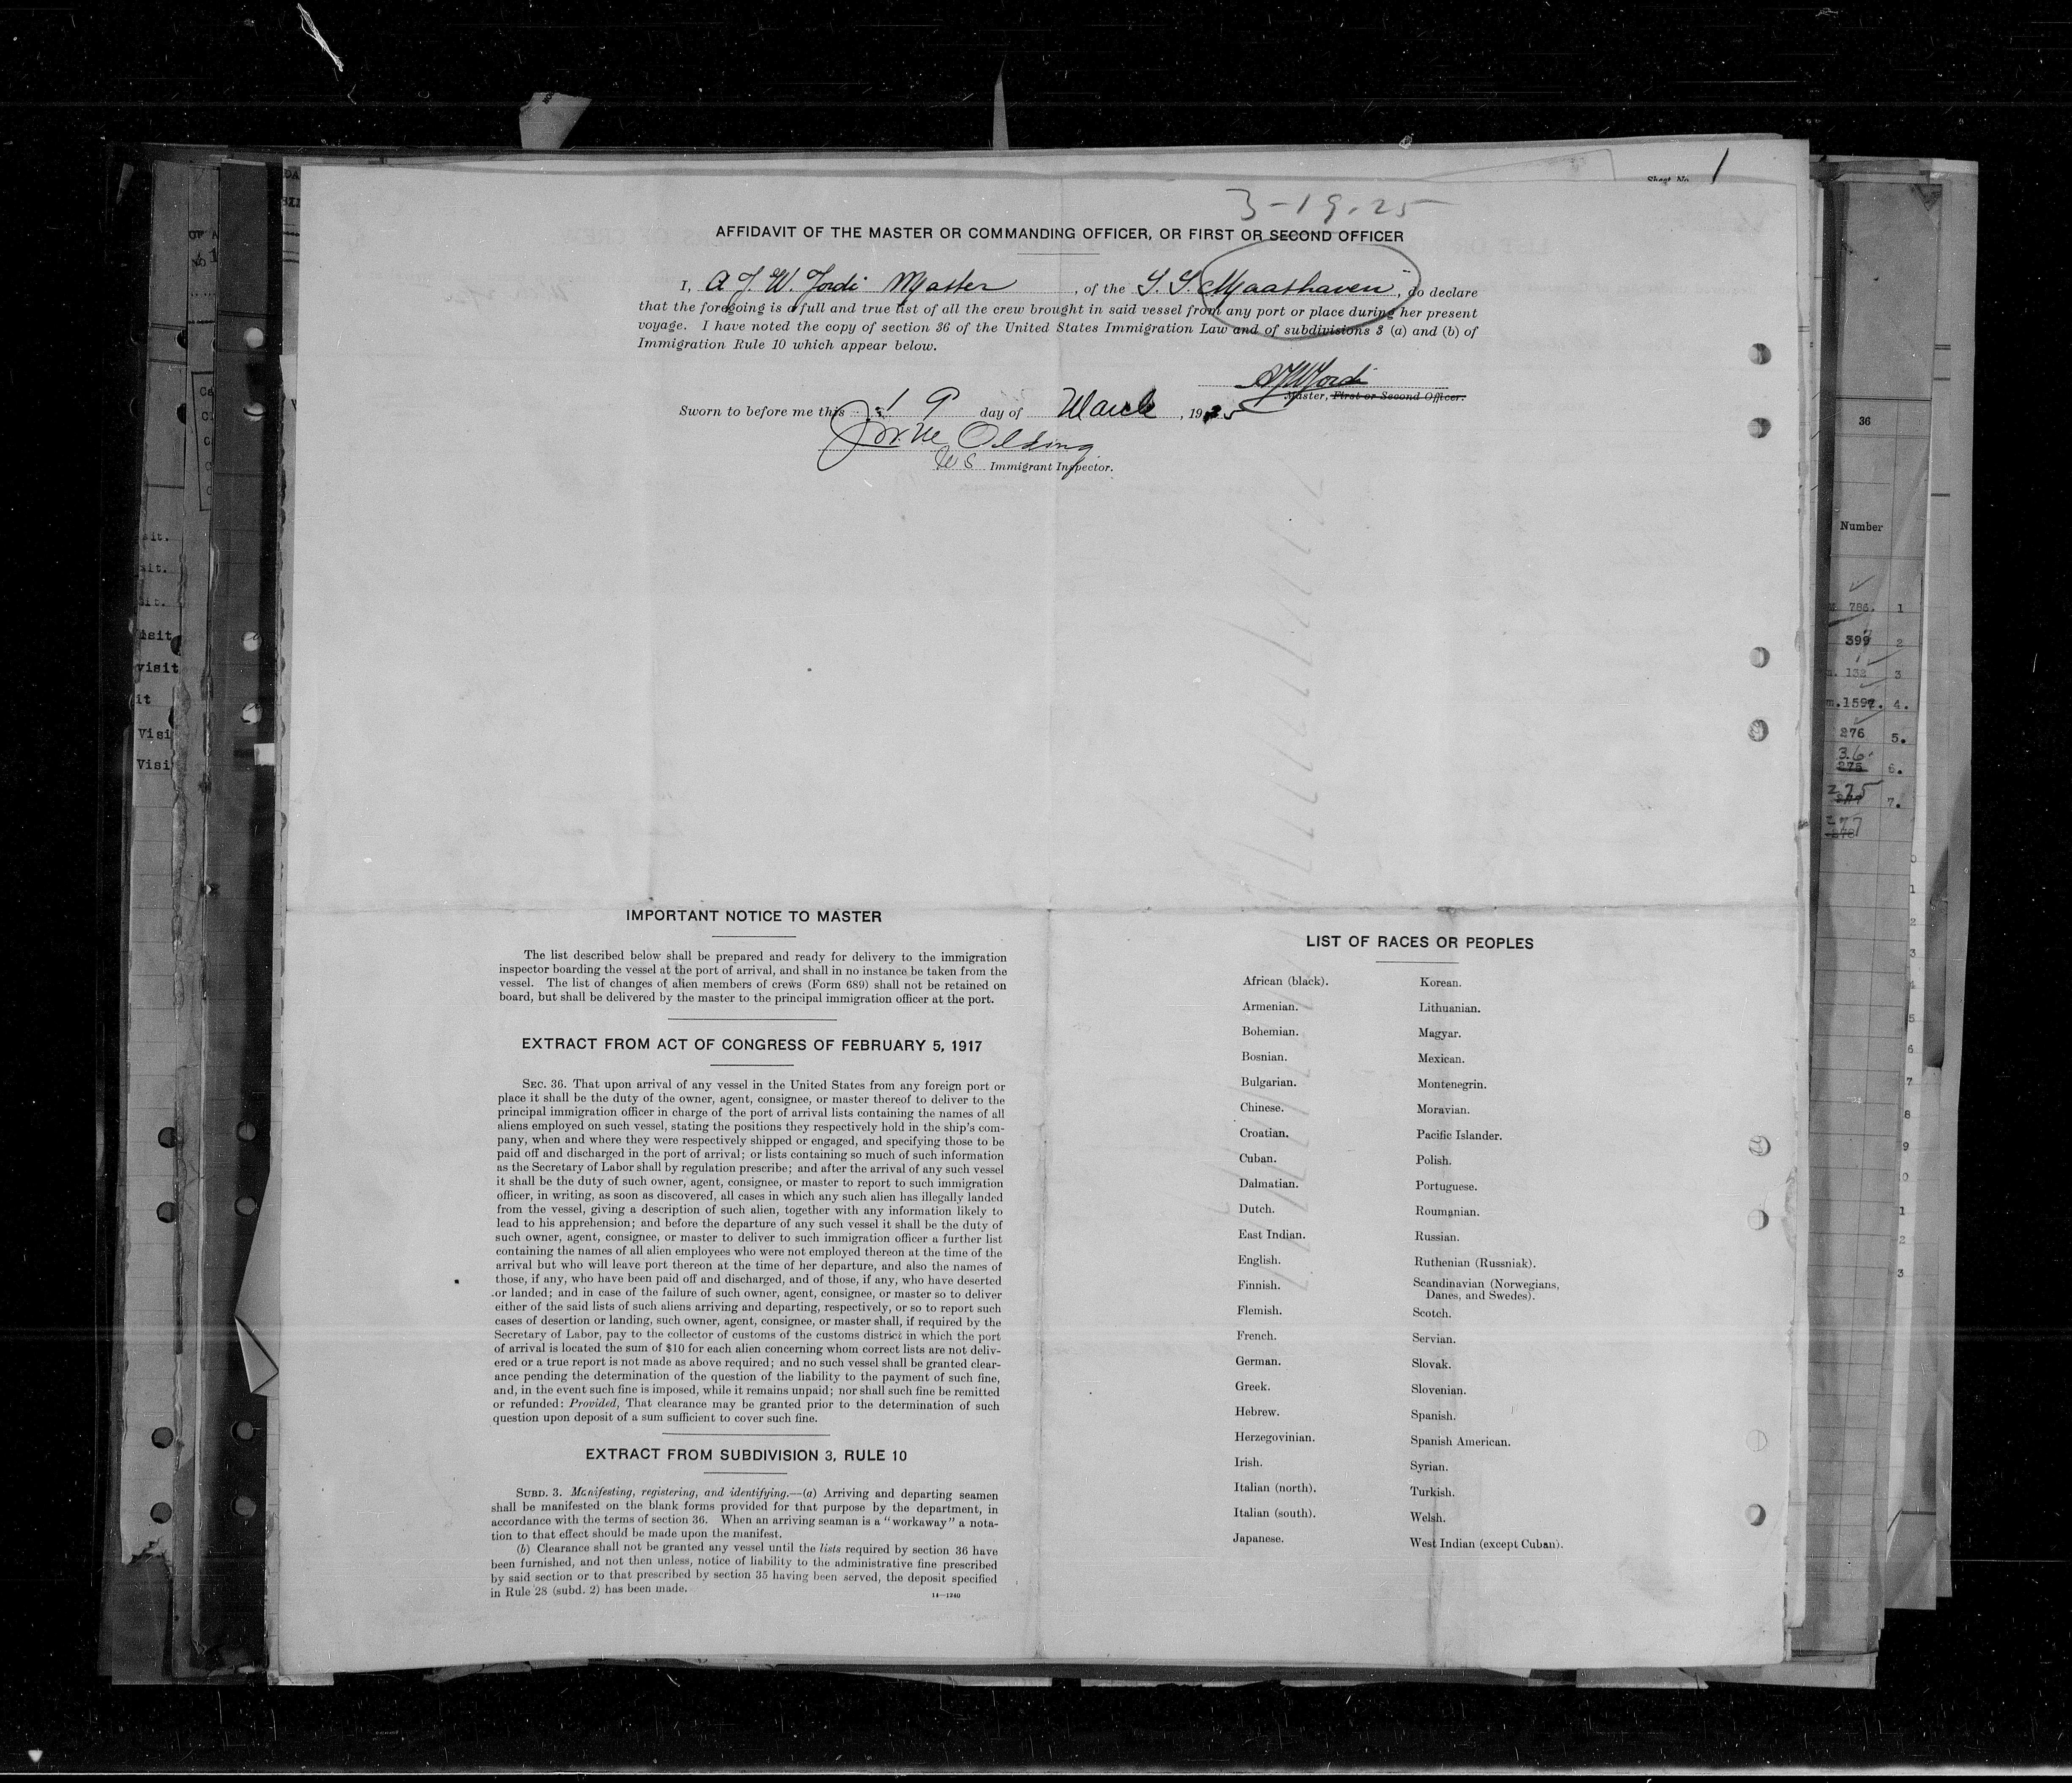 Sheet No. 1
3-19-25
AFFIDAVIT OF THE MASTER OR COMMANDING OFFICER, OR FIRST OR SECOND OFFICER
I, A J. W. Jordi Master, of the S. S. "Maashaven", do declare
that the foregoing is a full and true list of all the crew brought in said vessel from any port or place during her present
voyage. I have noted the copy of section 36 of the United States Immigration Law and of subdivisions 3 (a) and (b) of
Immigration Rule 10 which appear below.
AJWJordi
Master, First or Second Officer.
Sworn to before me this 19 day of March, 1925
Olding
US Immigrant Inspector.
IMPORTANT NOTICE TO MASTER
The list described below shall be prepared and ready for delivery to the immigration
inspector boarding the vessel at the port of arrival, and shall in no instance be taken from the
vessel. The list of changes of alien members of crews (Form 689) shall not be retained on
board, but shall be delivered by the master to the principal immigration officer at the port.
EXTRACT FROM ACT OF CONGRESS OF FEBRUARY 5, 1917
SEC. 36. That upon arrival of any vessel in the United States from any foreign port or
place it shall be the duty of the owner, agent, consignee, or master thereof to deliver to the
principal immigration officer in charge of the port of arrival lists containing the names of all
aliens employed on such vessel, stating the positions they respectively hold in the ship's com-
pany, when and where they were respectively shipped or engaged, and specifying those to be
paid off and discharged in the port of arrival; or lists containing so much of such information
as the Secretary of Labor shall by regulation prescribe; and after the arrival of any such vessel
it shall be the duty of such owner, agent, consignee, or master to report to such immigration
officer, in writing, as soon as discovered, all cases in which any such alien has illegally landed
from the vessel, giving a description of such alien, together with any information likely to
lead to his apprehension; and before the departure of any such vessel it shall be the duty of
such owner, agent, consignee, or master to deliver to such immigration officer a further list
containing the names of all alien employees who were not employed thereon at the time of the
arrival but who will leave port thereon at the time of her departure, and also the names of
those, if any, who have been paid off and discharged, and of those, if any, who have deserted
or landed; and in case of the failure of such owner, agent, consignee, or master so to deliver
either of the said lists of such aliens arriving and departing, respectively, or so to report such
cases of desertion or landing, such owner, agent, consignee, or master shall, if required by the
Secretary of Labor, pay to the collector of customs of the customs district in which the port
of arrival is located the sum of $10 for each alien concerning whom correct lists are not deliv-
ered or a true report is not made as above required; and no such vessel shall be granted clear-
ance pending the determination of the question of the liability to the payment of such fine,
and, in the event such fine is imposed, while it remains unpaid; nor shall such fine be remitted
or refunded: Provided, That clearance may be granted prior to the determination of such
question upon deposit of a sum sufficient to cover such fine.
EXTRACT FROM SUBDIVISION 3, RULE 10
SUBD. 3. Manifesting, registering, and identifying.—(a) Arriving and departing seamen
shall be manifested on the blank forms provided for that purpose by the department, in
accordance with the terms of section 36. When an arriving seaman is a "workaway" a nota-
tion to that effect should be made upon the manifest.
(b) Clearance shall not be granted any vessel until the lists required by section 36 have
been furnished, and not then unless, notice of liability to the administrative fine prescribed
by said section or to that prescribed by section 35 having been served, the deposit specified
in Rule 28 (subd. 2) has been made.
14—1240
LIST OF RACES OR PEOPLES
African (black).
Armenian.
Bohemian.
Bosnian.
Bulgarian.
Chinese.
Croatian.
Cuban.
Dalmatian.
Dutch.
East Indian.
English.
Finnish.
Flemish.
French.
German.
Greek.
Hebrew.
Herzegovinian.
Irish.
Italian (north).
Italian (south).
Japanese.
Korean.
Lithuanian.
Magyar.
Mexican.
Montenegrin.
Moravian.
Pacific Islander.
Polish.
Portuguese.
Roumanian.
Russian.
Ruthenian (Russniak).
Scandinavian (Norwegians,
Danes, and Swedes).
Scotch.
Servian.
Slovak.
Slovenian.
Spanish.
Spanish American.
Syrian.
Turkish.
Welsh.
West Indian (except Cuban).
36
Number
786. 1
399 2
132 3
1597. 4.
276 5.
36
275 6.
275
7.
277
visit
it